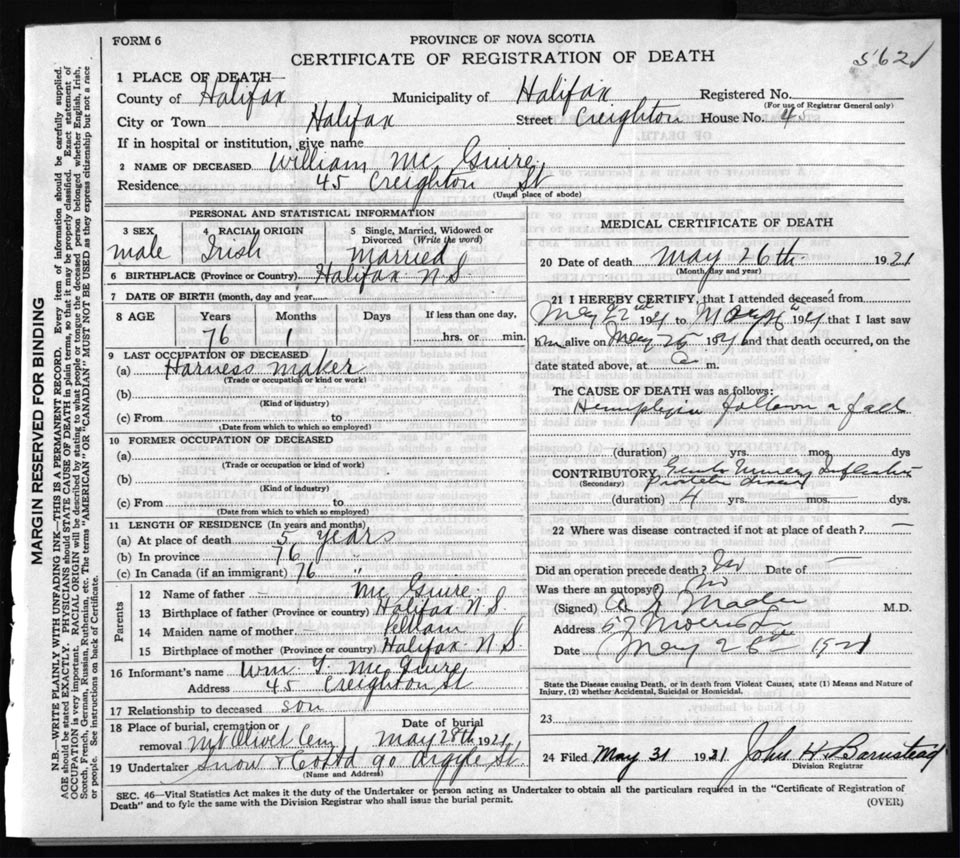 FORM 6
PROVINCE OF NOVA SCOTIA
CERTIFICATE OF REGISTRATION OF DEATH
5621
MARGIN RESERVED FOR BINDING
N.B.—WRITE PLAINLY WITH UNFADING INK—THIS IS A PERMANENT RECORD. Every item of information should be carefully supplied.
AGE should be stated EXACTLY. PHYSICIANS should STATE CAUSE OF DEATH in plain terms, so that it may be properly classified. Exact statement of
OCCUPATION is very important. RACIAL ORIGIN will be described by stating to what people or tongue the deceased person belonged whether English, Irish,
Scotch, French, German, Russian, Ruthenian, etc. The terms "AMERICAN" OR "CANADIAN" MUST NOT BE USED as they express citizenship but not a race
or people. See instructions on back of Certificate.
1 PLACE OF DEATH—
County of Halifax Municipality of Halifax Registered No.
(For use of Registrar General only)
City or Town Halifax Street Creighton House No. 45
If in hospital or institution, give name
2 NAME OF DECEASED William Mc Guire
Residence 45 Creighton St
(Usual place of abode)
PERSONAL AND STATISTICAL INFORMATION
3 SEX
male
4 RACIAL ORIGIN
Irish
5 Single, Married, Widowed or
Divorced (Write the word)
Married
6 BIRTHPLACE (Province or Country) Halifax N.S.
7 DATE OF BIRTH (month, day and year)
8 AGE Years Months Days If less than one day,
76 1 hrs. or min.
9 LAST OCCUPATION OF DECEASED
(a) Harness maker
(Trade or occupation or kind or work)
(b)
(Kind of industry)
(c) From to
(Date from which to which so employed)
10 FORMER OCCUPATION OF DECEASED
(a)
(Trade or occupation or kind of work)
(b)
(Kind of industry)
(c) From to
(Date from which to which so employed)
11 LENGTH OF RESIDENCE (In years and months)
(a) At place of death 5 years
(b) In province 76 "
(c) In Canada (if an immigrant) 76 "
Parents
12 Name of father — Mc Guire
13 Birthplace of father (Province or country) Halifax N S
14 Maiden name of mother — Pelham
15 Birthplace of mother (Province or country) Halifax N. S.
16 Informant's name Wm. Mc Guire
Address 45 Creighton St
17 Relationship to deceased son
18 Place of burial, cremation or
removal Mt Olivet Cem
Date of burial
May 28th 1921
19 Undertaker Snow & Co Ltd 90 Argyle St.
(Name and Address)
MEDICAL CERTIFICATE OF DEATH
20 Date of death May 26th 1921
(Month, day and year)
21 I HEREBY CERTIFY, that I attended deceased from
May 22nd 1921 to May 1921 that I last saw
him alive on May 25 1921 and that death occurred, on the
date stated above, at 2 m.
The CAUSE OF DEATH was as follows:
Hemiplegia follown a fall
(duration) yrs. mos. dys.
CONTRIBUTORY
(Secondary)
(duration) 4 yrs. mos. dys.
22 Where was disease contracted if not at place of death? —
Did an operation precede death? No Date of —
Was there an autopsy? No
(Signed) Mader M.D.
Address 57 Morris St
Date May 26th 1921
State the Disease causing Death, or in death from Violent Causes, state (1) Means and Nature of
Injury, (2) whether Accidental, Suicidal or Homicidal.
23
24 Filed May 31 1931 John H. Barnstead
Division Registrar
SEC. 46—Vital Statistics Act makes it the duty of the Undertaker or person acting as Undertaker to obtain all the particulars required in the "Certificate of Registration of
Death" and to fyle the same with the Division Registrar who shall issue the burial permit.
(OVER)